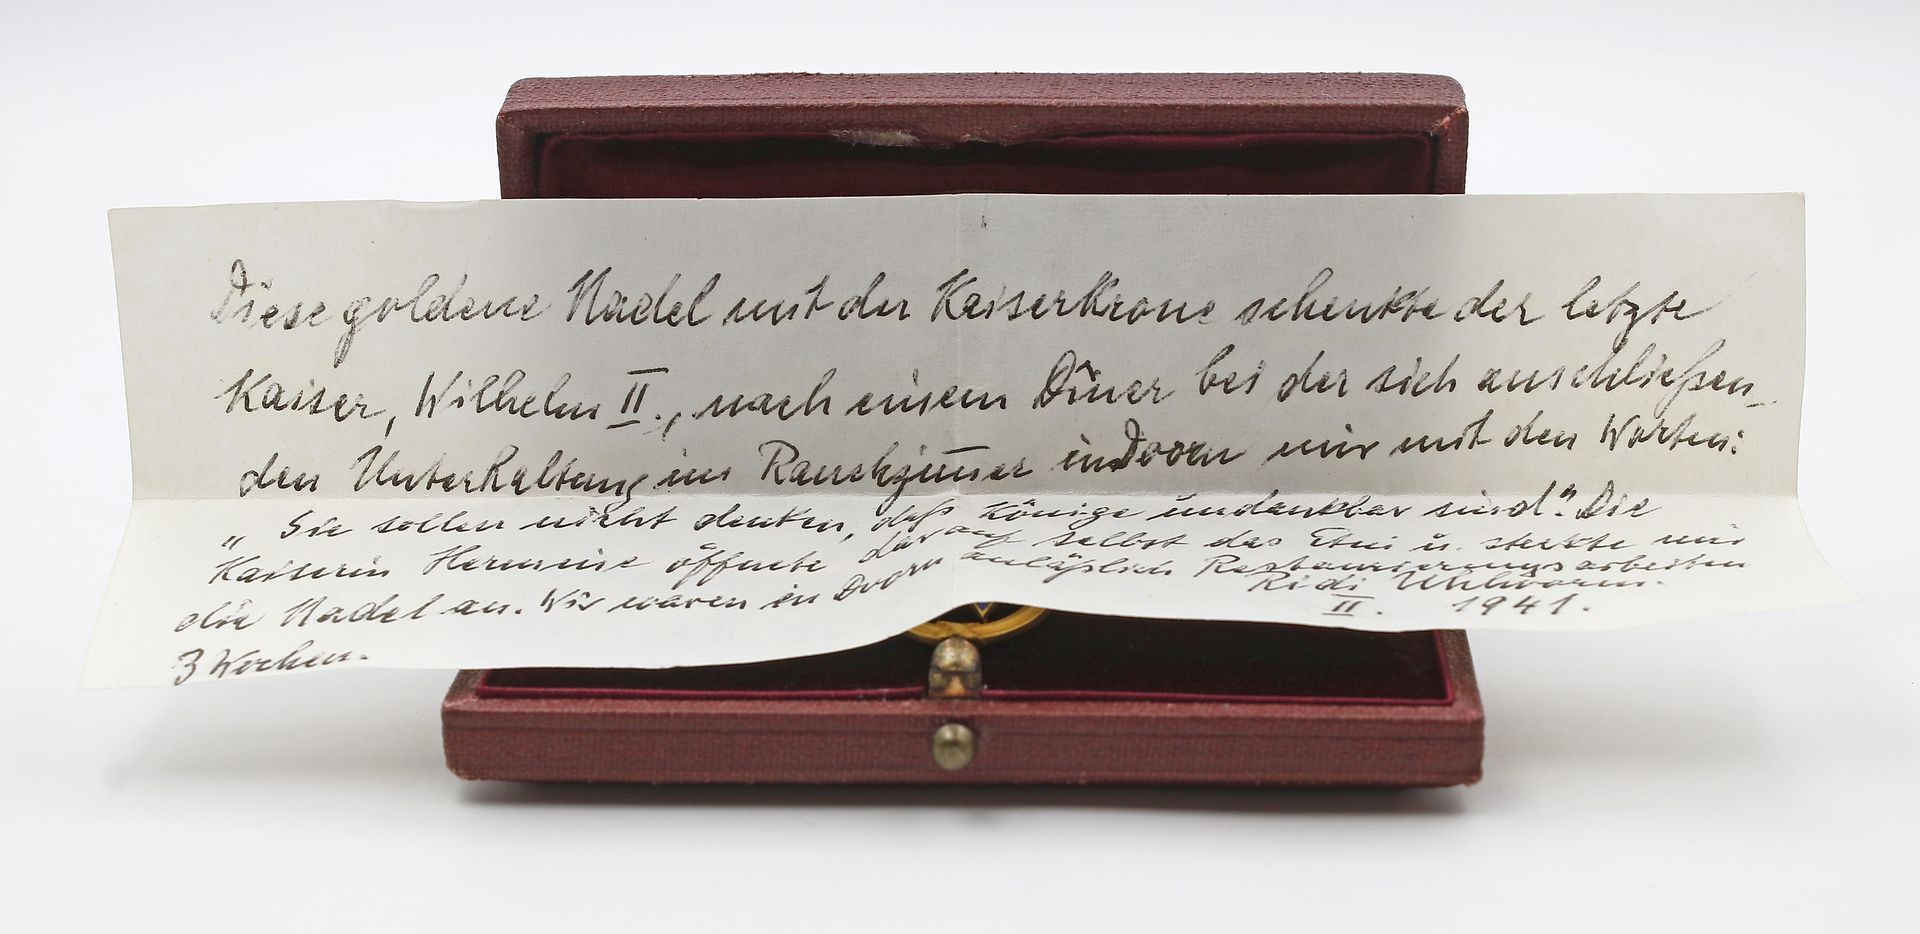 Diese goldene Nadel mit der Kaiserkrone schenkte der letzte
Kaiser, Wilhelm II., nach einem Diner bei der sich anschließen-
den Unterhaltung im Rauchzimmer in Doorn mir mit den Worten:
„Sie sollen nicht denken, daß Könige undankbar sind". Die
Kaiserin Hermine öffnete darauf selbst das Etui u. steckte mir
die Nadel an. Wir waren in Doorn anläßlich Restaurierungsarbeiten
3 Wochen.
Ridi
II. 1941.